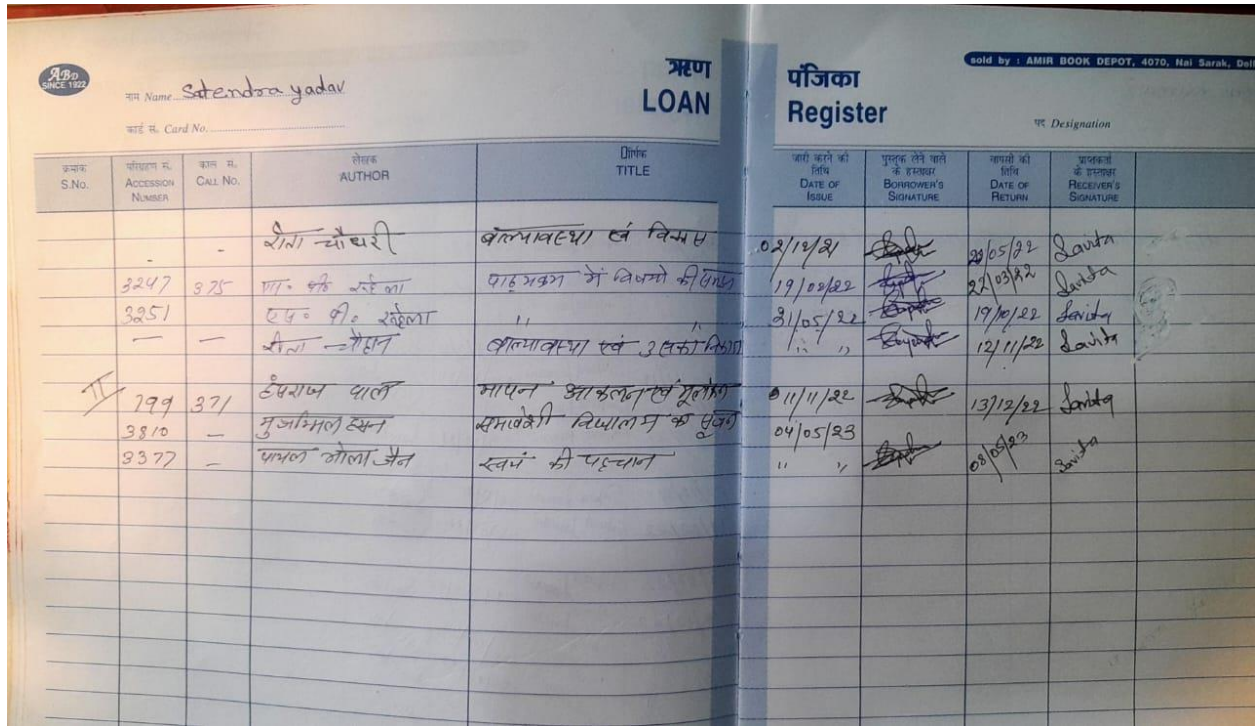 ABD
SINCE 1922
ऋण पंजिका
LOAN Register
sold by : AMIR BOOK DEPOT, 4070, Nai Sarak, Del
नाम Name Satendra yadav
कार्ड सं. Card No.
पद Designation
क्रमांक S.No. परिग्रहण सं. ACCESSION NUMBER काल सं. CALL No. लेखक AUTHOR शीर्षक TITLE जारी करने की तिथि DATE OF ISSUE पुस्तक लेने वाले के हस्ताक्षर BORROWER'S SIGNATURE वापसी की तिथि DATE OF RETURN प्राप्तकर्ता के हस्ताक्षर RECEIVER'S SIGNATURE
- - रीता चौधरी बाल्यावस्था एवं विकास 02/12/21 /05/22 Savita
3247 375 पाठ्यक्रम में विषयो की 19/02/22 22/03/22 Savita
3251 एस० पी० रूहेला " " 31/05/22 19/10/22 Savita
— — रीता चौहान बाल्यावस्था एवं उसका विकास " " 12/11/22 Savita
II 799 371 हंसराज पाल मापन आकलन एवं मूल्यांकन 11/11/22 13/12/22 Savita
3810 — मुजम्मिल हसन समावेशी विद्यालय का सृजन 04/05/23
3377 — पायल भोला जैन स्वयं की पहचान " " 08/05/23 Savita